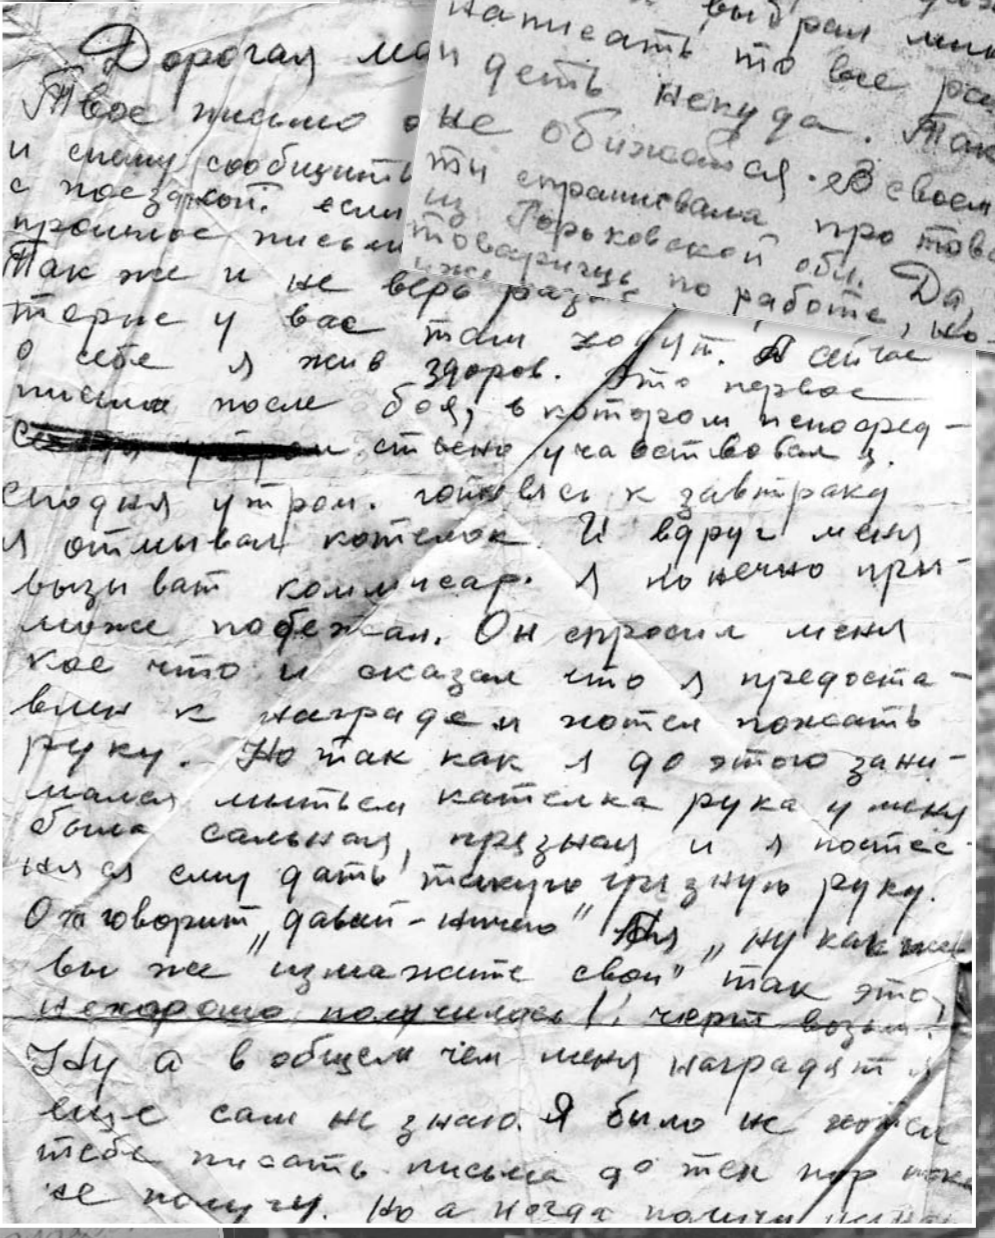 Дорогая моя
Твое письмо
и спешу сообщить
с поездкой. если
прошлое письмо
Так же и не верь
торые у вас там ходут. А сейчас
о себе я жив здоров. Это первое
письмо после боя, в котором непосред-
ствено учавствовал я.
Сегодня утром. готовясь к завтраку
я отмывал котелок. И вдруг меня
вызыват коммисар. Я конечно при-
може побежал. Он спросил меня
кое что и сказал что я предоста-
влен к награде и хотел пожать
руку. Но так как я до этого зани-
мался мытьем кателка рука у меня
была сальная, грязная и я постес-
нялся ему дать такую грязную руку.
Он говорит „давай-ничего" А я „ну как же
вы же измажите свои" так это
нехорошо получилось!, черт возьми!
Ну а в общем чем меня наградят я
еще сам не знаю. Я было не хотел
тебе писать письма до тех пор пока
не получу. Но а когда получу
выбрал мину
написать то все
и деть некуда. Так
не обижайся. В своем
ты спрашивала про това
из Горьковской обл. Да,
товарищь по работе, но